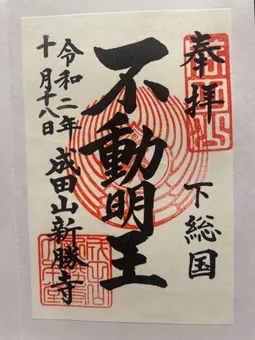 奉拝
下総国
不動明王
成田山新勝寺
令和二年
十月十八日